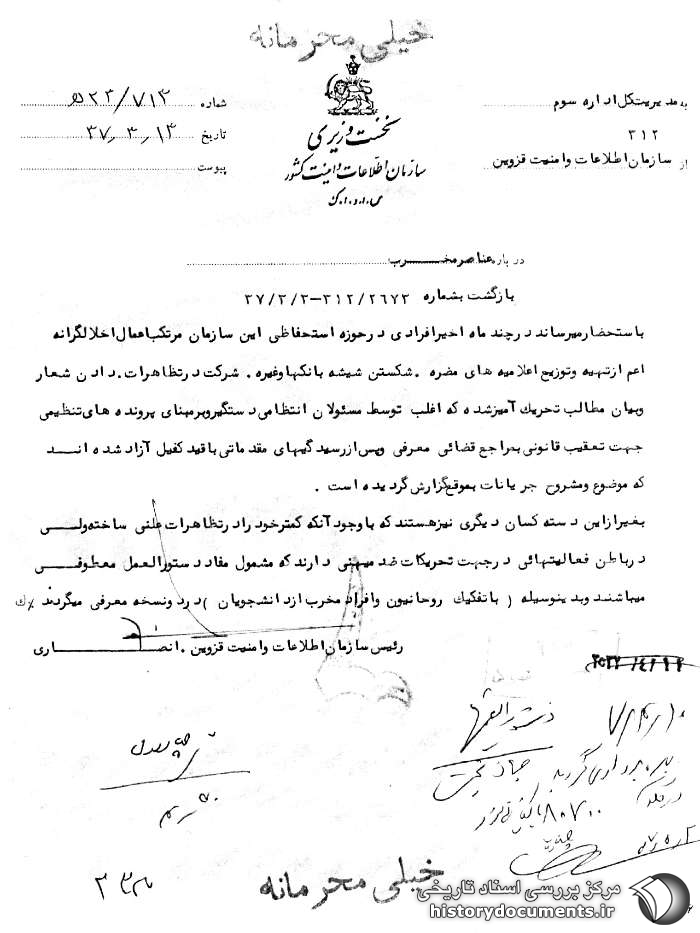 خیلی محرمانه
نخست وزیری
سازمان اطلاعات و امنیت کشور
س.ا.و.ا.ک
به مدیریت کل اداره سوم
۳۱۲
از سازمان اطلاعات و امنیت قزوین
شماره ۷۱۳/ ۲۳ه
تاریخ ۳۷/۳/۱۳
پیوست
درباره عناصر مخرب
بازگشت بشماره ۳۱۲/۲۶۷۲-۳۷/۲/۲
باستحضار میرساند در چند ماه اخیر افرادی در حوزه استحفاظی این سازمان مرتکب اعمال اخلالگرانه
اعم از تهیه و توزیع اعلامیه های مضره . شکستن شیشه بانکها وغیره . شرکت در تظاهرات . دادن شعار
وبیان مطالب تحریک آمیز شده که اغلب توسط مسئولان انتظامی دستگیر وبرمبنای پرونده های تنظیمی
جهت تعقیب قانونی بمراجع قضائی معرفی وپس از رسیدگیهای مقدماتی با قید کفیل آزاد شده انـــد
که موضوع ومشروح جریانات بموقع گزارش گردیده است .
بغیر از این دسته کسان دیگری نیز هستند که با وجود آنکه کمتر خود را در تظاهرات علنی ساخته ولـــی
در باطن فعالیتهائی در جهت تحریکات ضد میهنی دارند که مشمول مفاد دستورالعمل معطوفـــی
میباشند وبدینوسیله ( با تفکیک روحانیون وافراد مخرب از دانشجویان ) در دو نسخه معرفی میگردند
رئیس سازمان اطلاعات وامنیت قزوین . انصــــاری
بهره برداری گردید
۸۰۷۰۰
خیلی محرمانه
مرکز بررسی اسناد تاریخی
historydocuments.ir